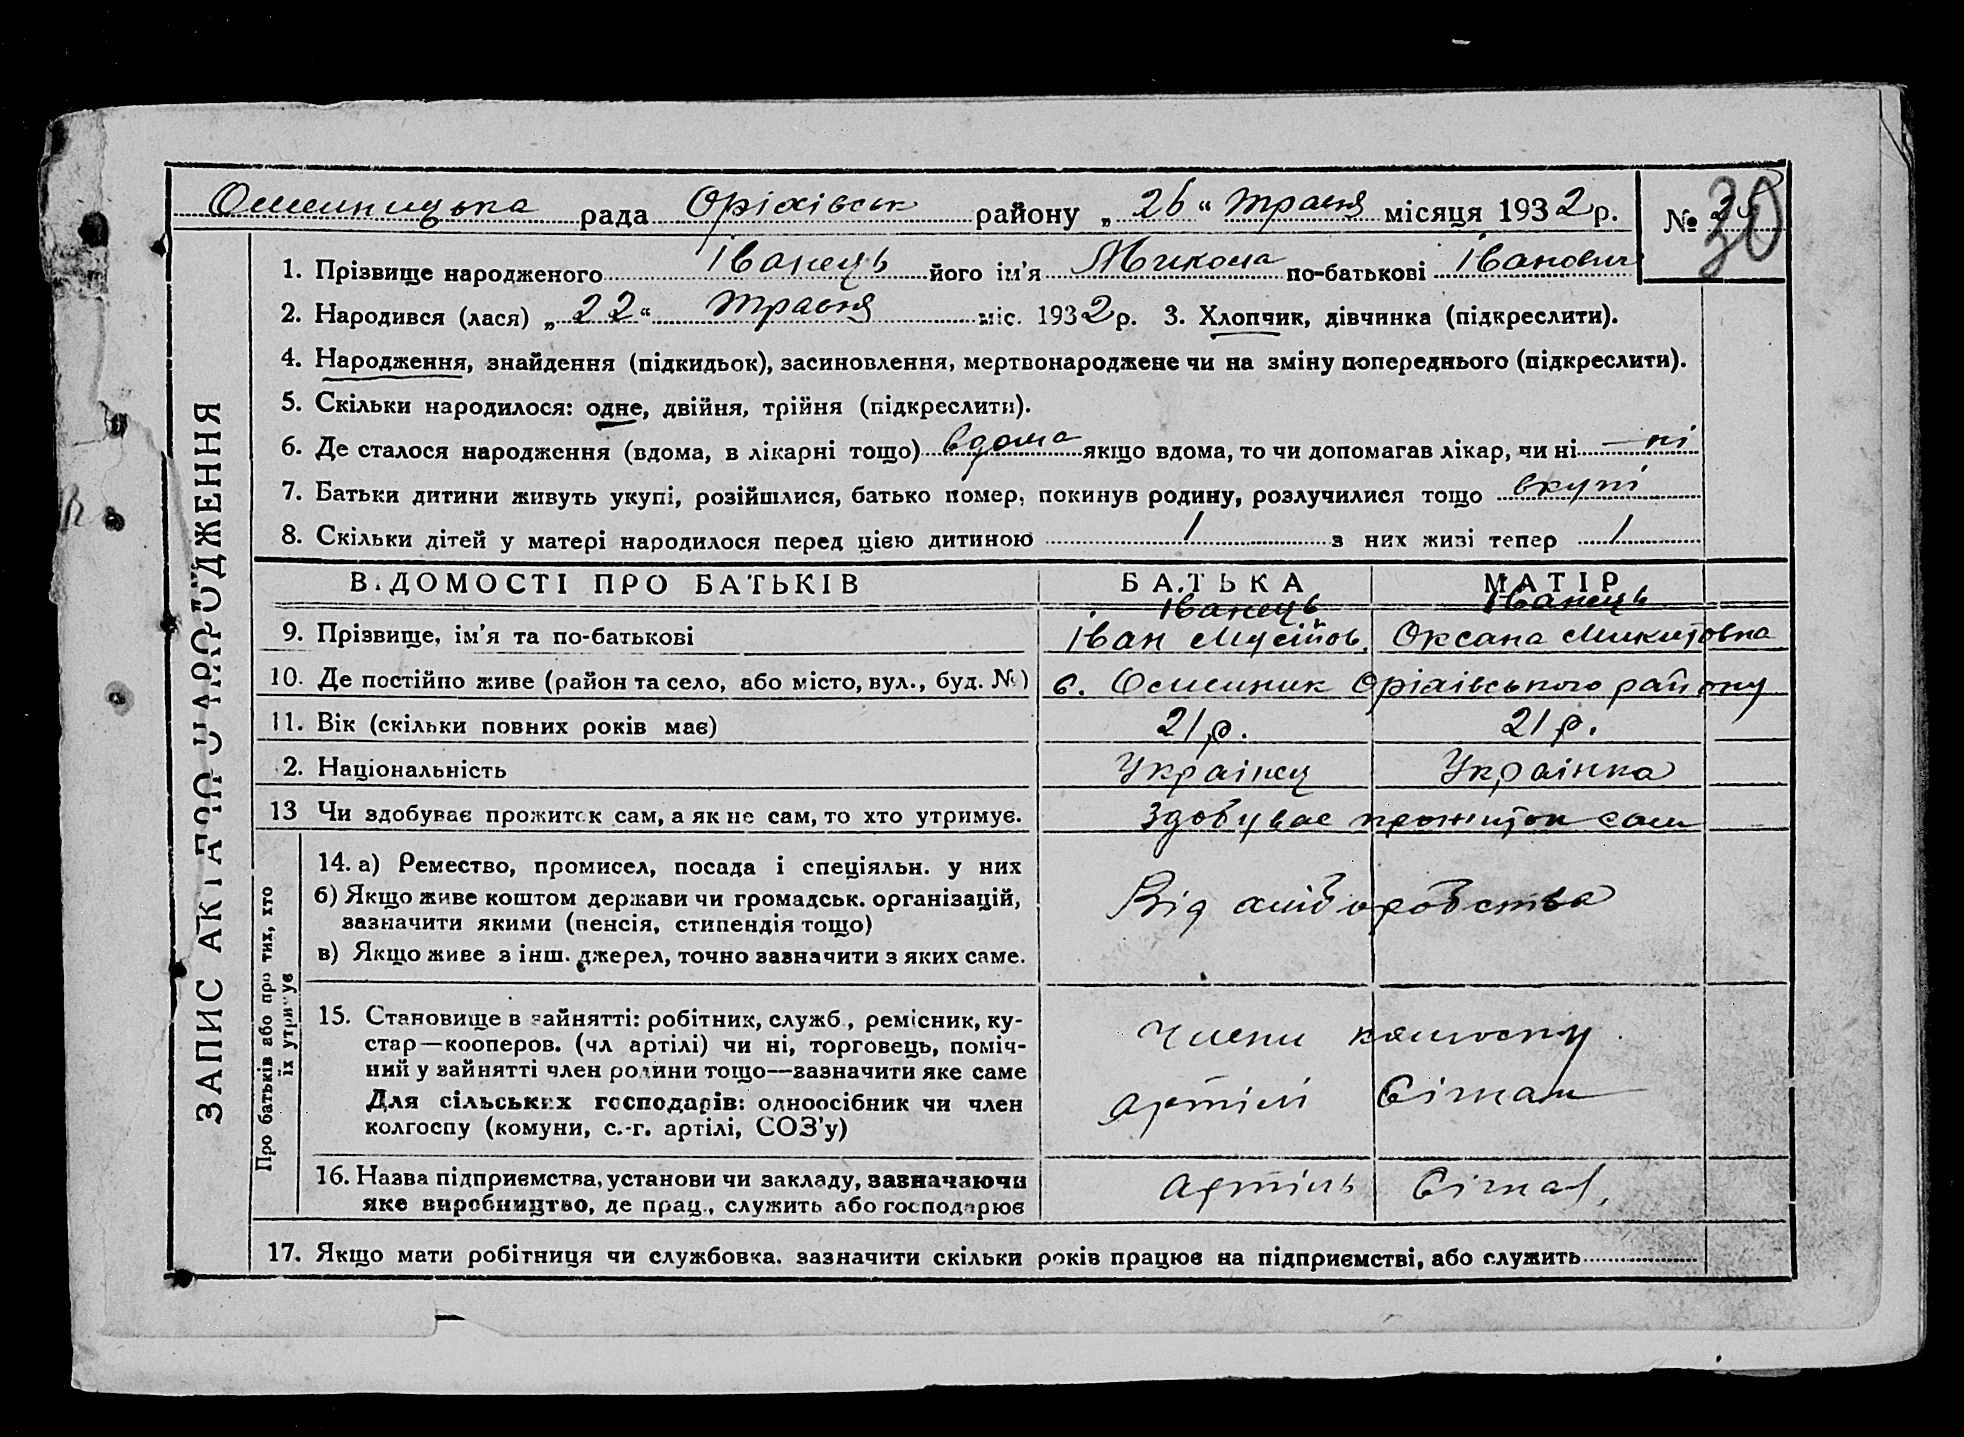 рада Оріхівськ району „ 26 “ травня місяця 1932 р. № 30
ЗАПИС АКТА ПРО НАРОДЖЕННЯ
1. Прізвище народженого Іванець його ім'я Микола по-батькові Іванович
2. Народився (лася) „ 22 “ травня міс. 1932 р. 3. Хлопчик, дівчинка (підкреслити).
4. Народження, знайдення (підкидьок), засиновлення, мертвонароджене чи на зміну попереднього (підкреслити).
5. Скільки народилося: одне, двійня, трійня (підкреслити).
6. Де сталося народження (вдома, в лікарні тощо) вдома якщо вдома, то чи допомагав лікар, чи ні — ні
7. Батьки дитини живуть укупі, розійшлися, батько помер, покинув родину, розлучилися тощо вкупі
8. Скільки дітей у матері народилося перед цією дитиною 1 з них живі тепер 1
ВІДОМОСТІ ПРО БАТЬКІВ БАТЬКА МАТІР
Іванець Іванець
9. Прізвище, ім'я та по-батькові Іван Мусійов. Оксана Микитовна
10. Де постійно живе (район та село, або місто, вул., буд. №) с. Осменик Оріхівського району
11. Вік (скільки повних років має) 21 р. 21 р.
2. Національність Українец Українка
13 Чи здобуває прожиток сам, а як не сам, то хто утримує. Здобуває прожиток сам
Про батьків або про тих, хто
їх утримує
14. а) Ремество, промисел, посада і спеціяльн. у них
б) Якщо живе коштом держави чи громадськ. організацій,
зазначити якими (пенсія, стипендія тощо)
Від хліборобства
в) Якщо живе з інш. джерел, точно зазначити з яких саме.
15. Становище в зайнятті: робітник, служб., ремісник, ку-
стар—кооперов. (чл артілі) чи ні, торговець, поміч-
ний у зайнятті член родини тощо—зазначити яке саме
Для сільських господарів: одноосібник чи член
колгоспу (комуни, с.-г. артілі, СОЗ'у)
Члени колгоспу
артілі Сігнал
16. Назва підприємства, установи чи закладу, зазначаючи
яке виробництво, де прац., служить або господарює
Артіль Сігнал,
17. Якщо мати робітниця чи службовка. зазначити скільки років працює на підприємстві, або служить